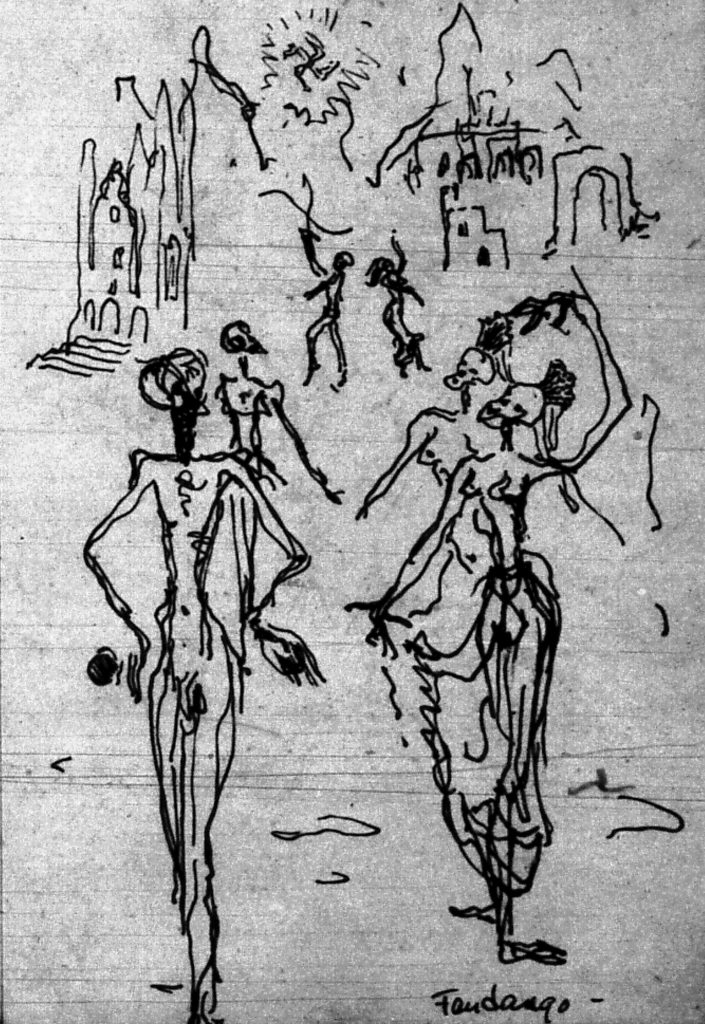 Fandango -